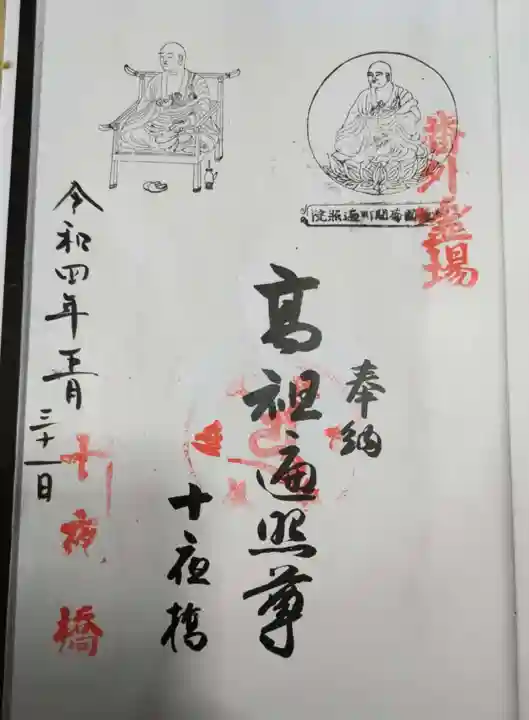 番外霊場
奉納
高祖遍照尊
十夜橋
令和四年五月三十一日
十夜橋